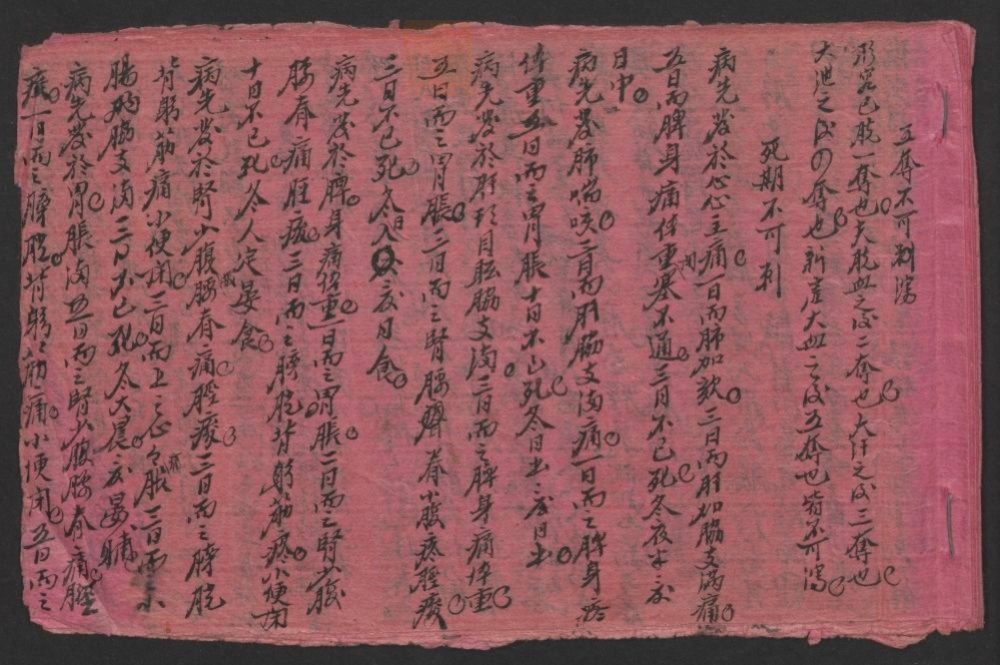 五奪不可刺瀉
形容已脫一奪也大脫血之后二奪也大汗之后三奪也
大泄之后四奪也新產大血之后五奪也皆不可瀉
死期不可刺
病先發於心心主痛一日而肺加欬三日而肝加脇支滿痛
五日而脾身痛体重塞不通三日不已死冬夜半夏
日中
病先發肺喘咳三日而肝脇支滿痛一日而之脾身疼
体重五日而之胃脹十日不已死冬日出夏日出
病先發於肝頭目眩脇支滿三日而之脾身痛体重
五日而之胃脹三日而之腎腰臍脊小腹疼脛痠
三日不已死冬日入夏日食
病先發於脾身痛体重一日而之胃脹二日而之腎少腹
腰脊痛脛痠三日而之膀胱背䏚筋疼小便閉
十日不已死冬人定晏食
病先發於腎少腹腰脊痛脛痠三日而之膀胱
背䏚筋痛小便閉三日而上之心心脹三日而小
腸胸脇支滿三日不已死冬大晨夏晏晡
病先發於胃脹滿五日而之腎少腹腰脊痛脛
痠一日而之膀胱背䏚之筋痛小便閉五日而之